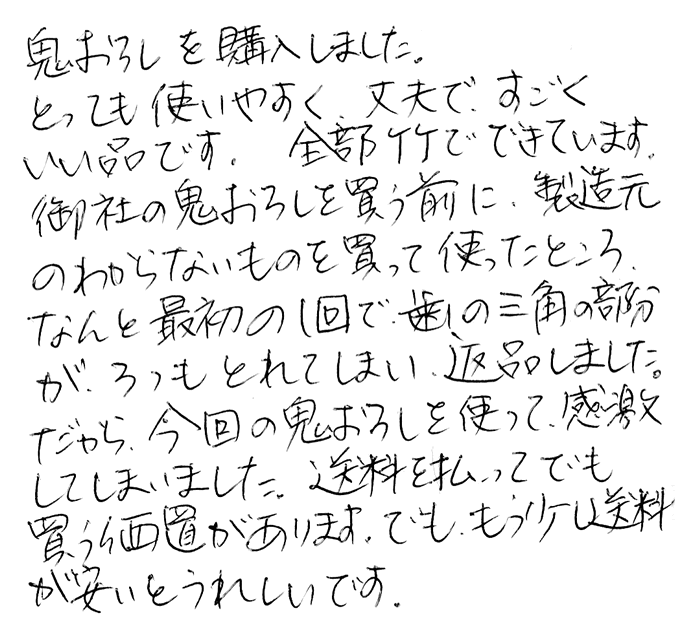 鬼おろしを購入しました。
とっても使いやすく、丈夫で、すごく
いい品です。全部竹でできています。
御社の鬼おろしを買う前に、製造元
のわからないものを買って使ったところ、
なんと最初の1回で、歯の三角の部分
が、3つもとれてしまい、返品しました。
だから、今回の鬼おろしを使って、感激
してしまいました。送料を払ってでも
買う価置があります。でも、もう少し送料
が安いとうれしいです。